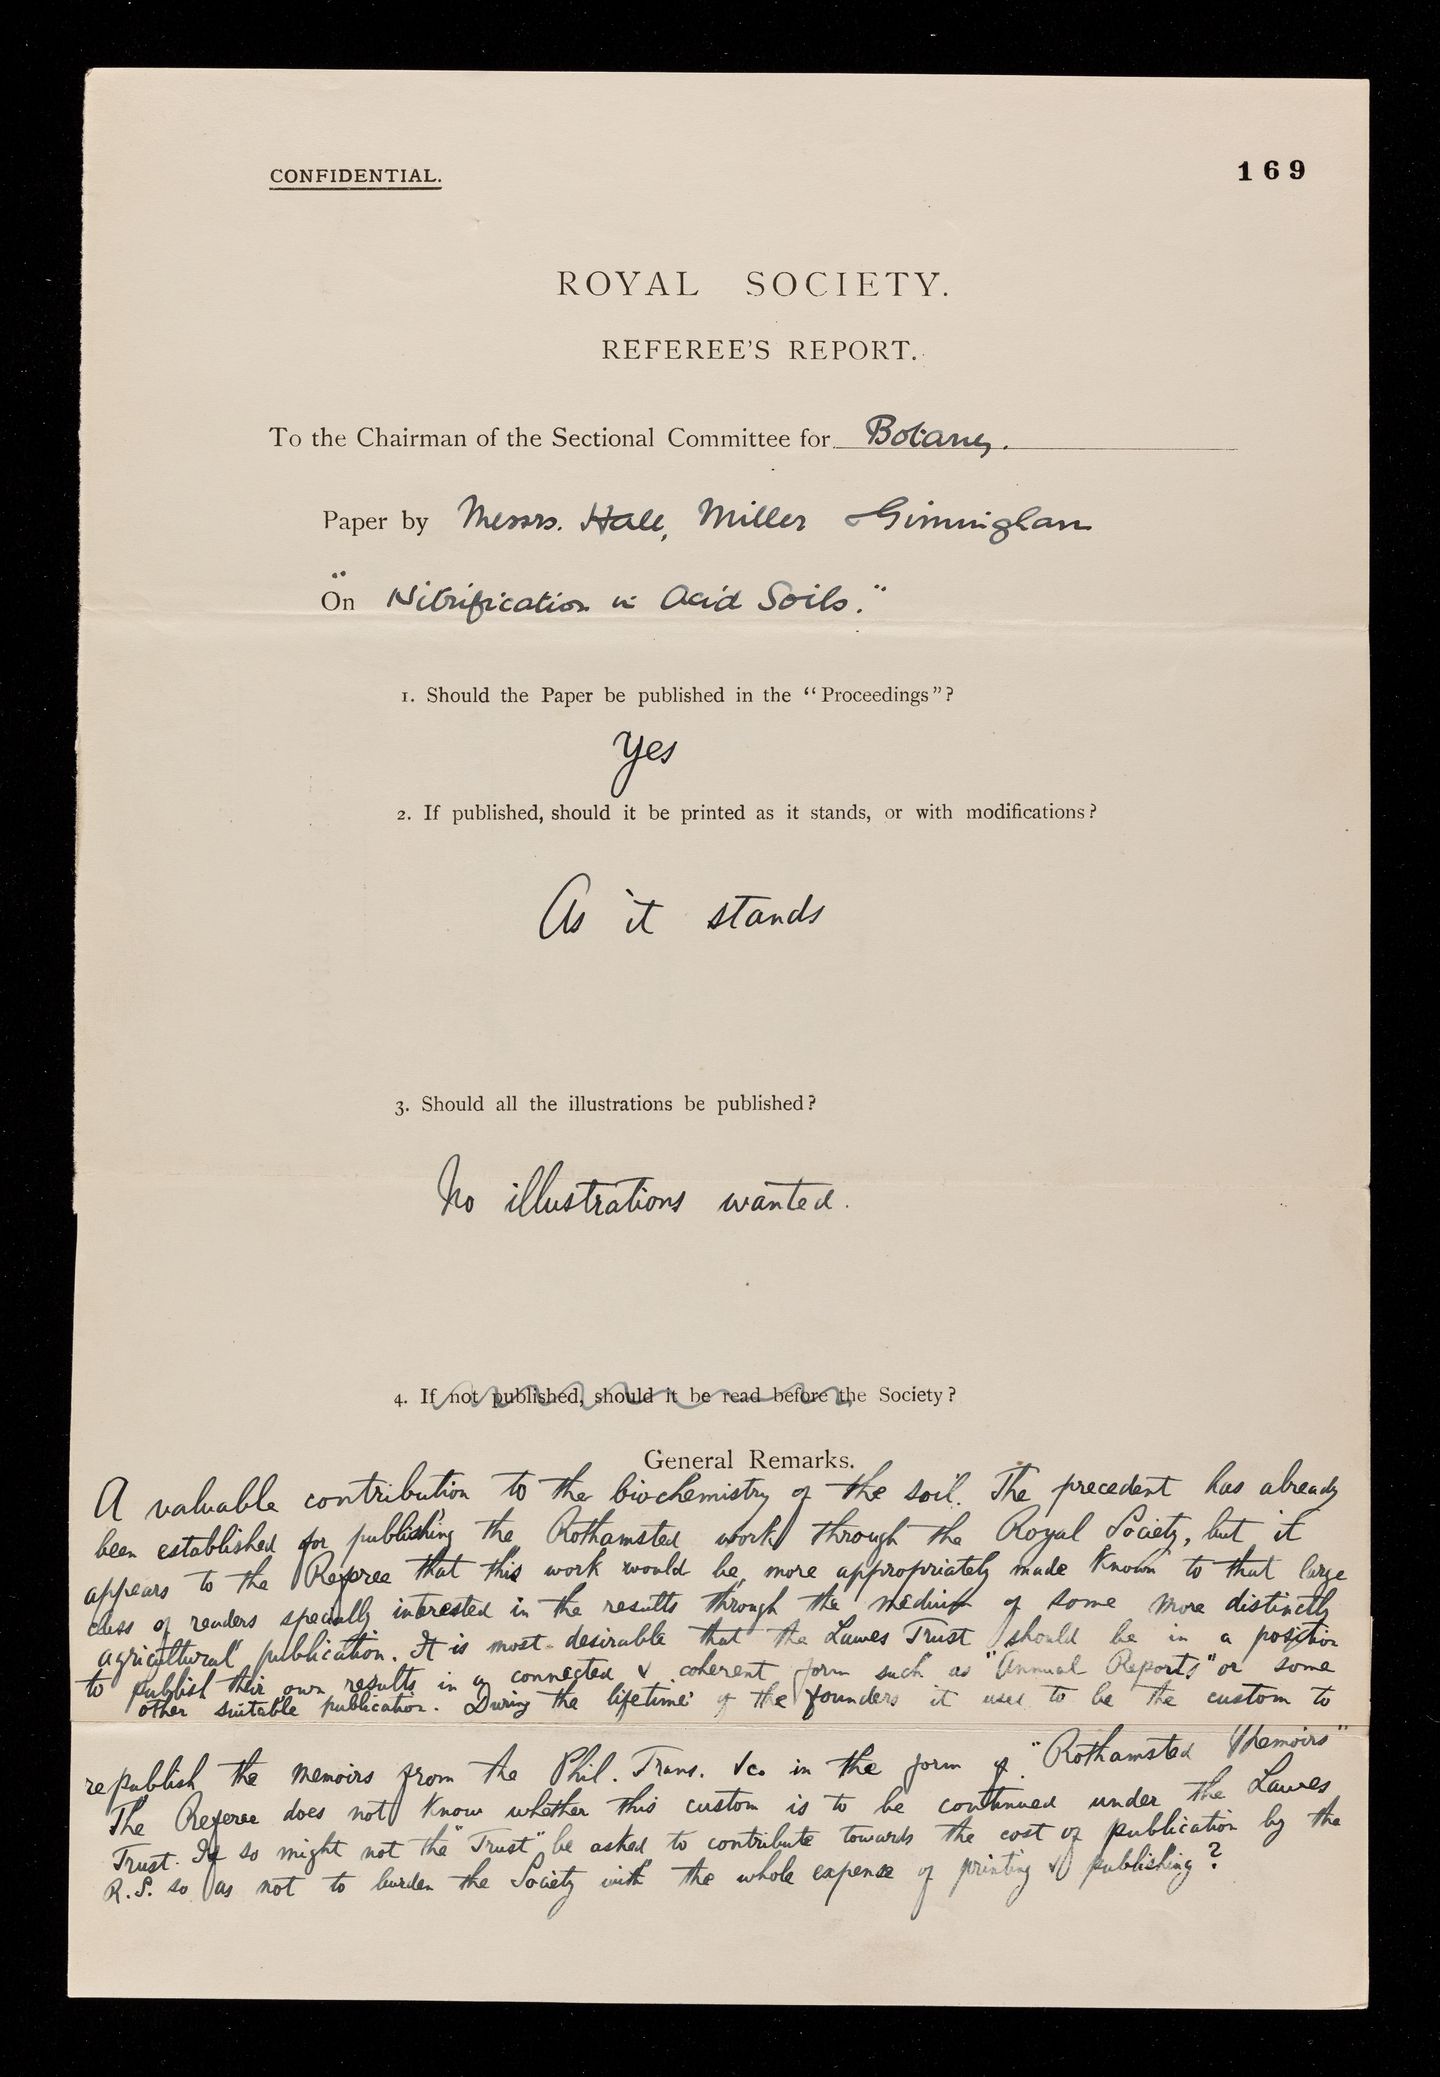 CONFIDENTIAL.
169
ROYAL SOCIETY.
REFEREE'S REPORT.
To the Chairman of the Sectional Committee for Botany.
Paper by Messrs. Hall, Miller & Gimingham
"On Nitrification in Acid Soils."
1. Should the Paper be published in the "Proceedings"?
Yes
2. If published, should it be printed as it stands, or with modifications?
As it stands
3. Should all the illustrations be published?
No illustrations wanted.
4. If not published, should it be read before the Society?
General Remarks.
A valuable contribution to the biochemistry of the soil. The precedent has already
been established for publishing the Rothamsted work through the Royal Society, but it
appears to the Referee that this work would be more appropriately made known to that large
class of readers specially interested in the results through the medium of some more distinctly
agricultural publication. It is most desirable that the Lawes Trust should be in a position
to publish their own results in a connected & coherent form such as "Annual Reports" or some
other suitable publication. During the lifetime of the founders it used to be the custom to
republish the memoirs from the Phil. Trans. &c. in the form of "Rothamsted Memoirs"
The Referee does not know whether this custom is to be continued under the Lawes
Trust. If so might not the "Trust" be asked to contribute towards the cost of publication by the
R.S. so as not to burden the Society with the whole expense of printing & publishing?